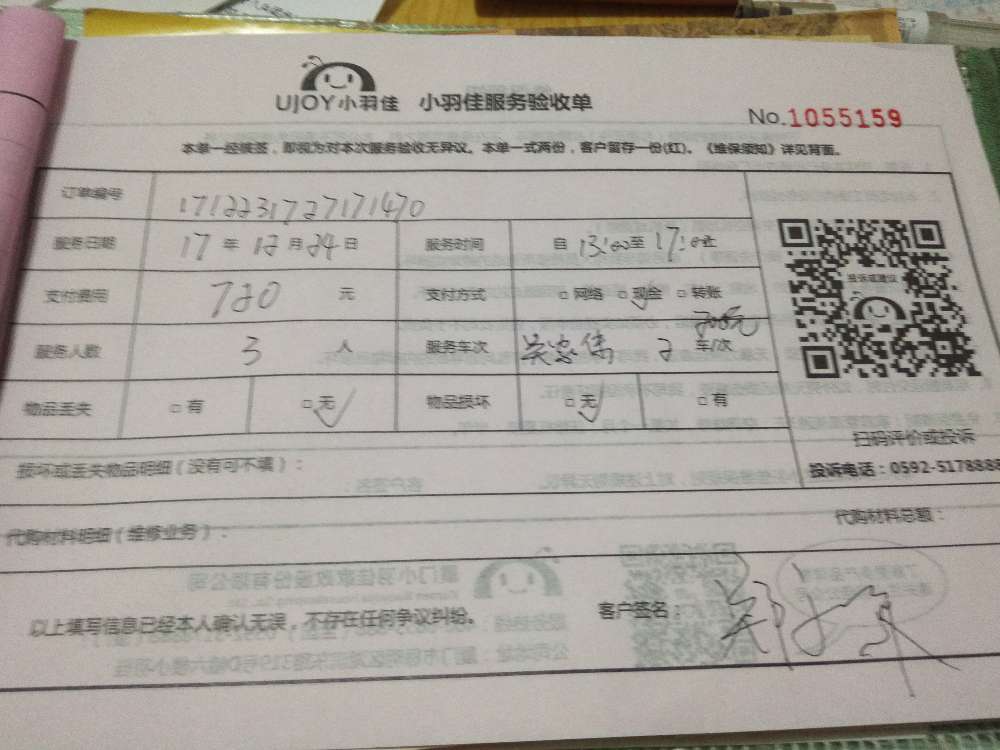 UJOY小羽佳 小羽佳服务验收单
No.1055159
本单一经被签，即视为对本次服务验收无异议。本单一式两份，客户留存一份(红)。《维保须知》详见背面。
订单编号 1712231727171470
服务日期 17 年 12 月 24 日 服务时间 自 13:00至 17:
支付费用 720 元 支付方式 □网络 □现金 □转账
服务人数 3 人 服务车次 2 车/次
物品丢失 □有 □无 物品损坏 □无 □有
投诉或建议
扫码评价或投诉
投诉电话：0592-5178888
损坏或丢失物品明细（没有可不填）：
代购材料明细（维修业务）： 代购材料总额：
以上填写信息已经本人确认无误，不存在任何争议纠纷。 客户签名：